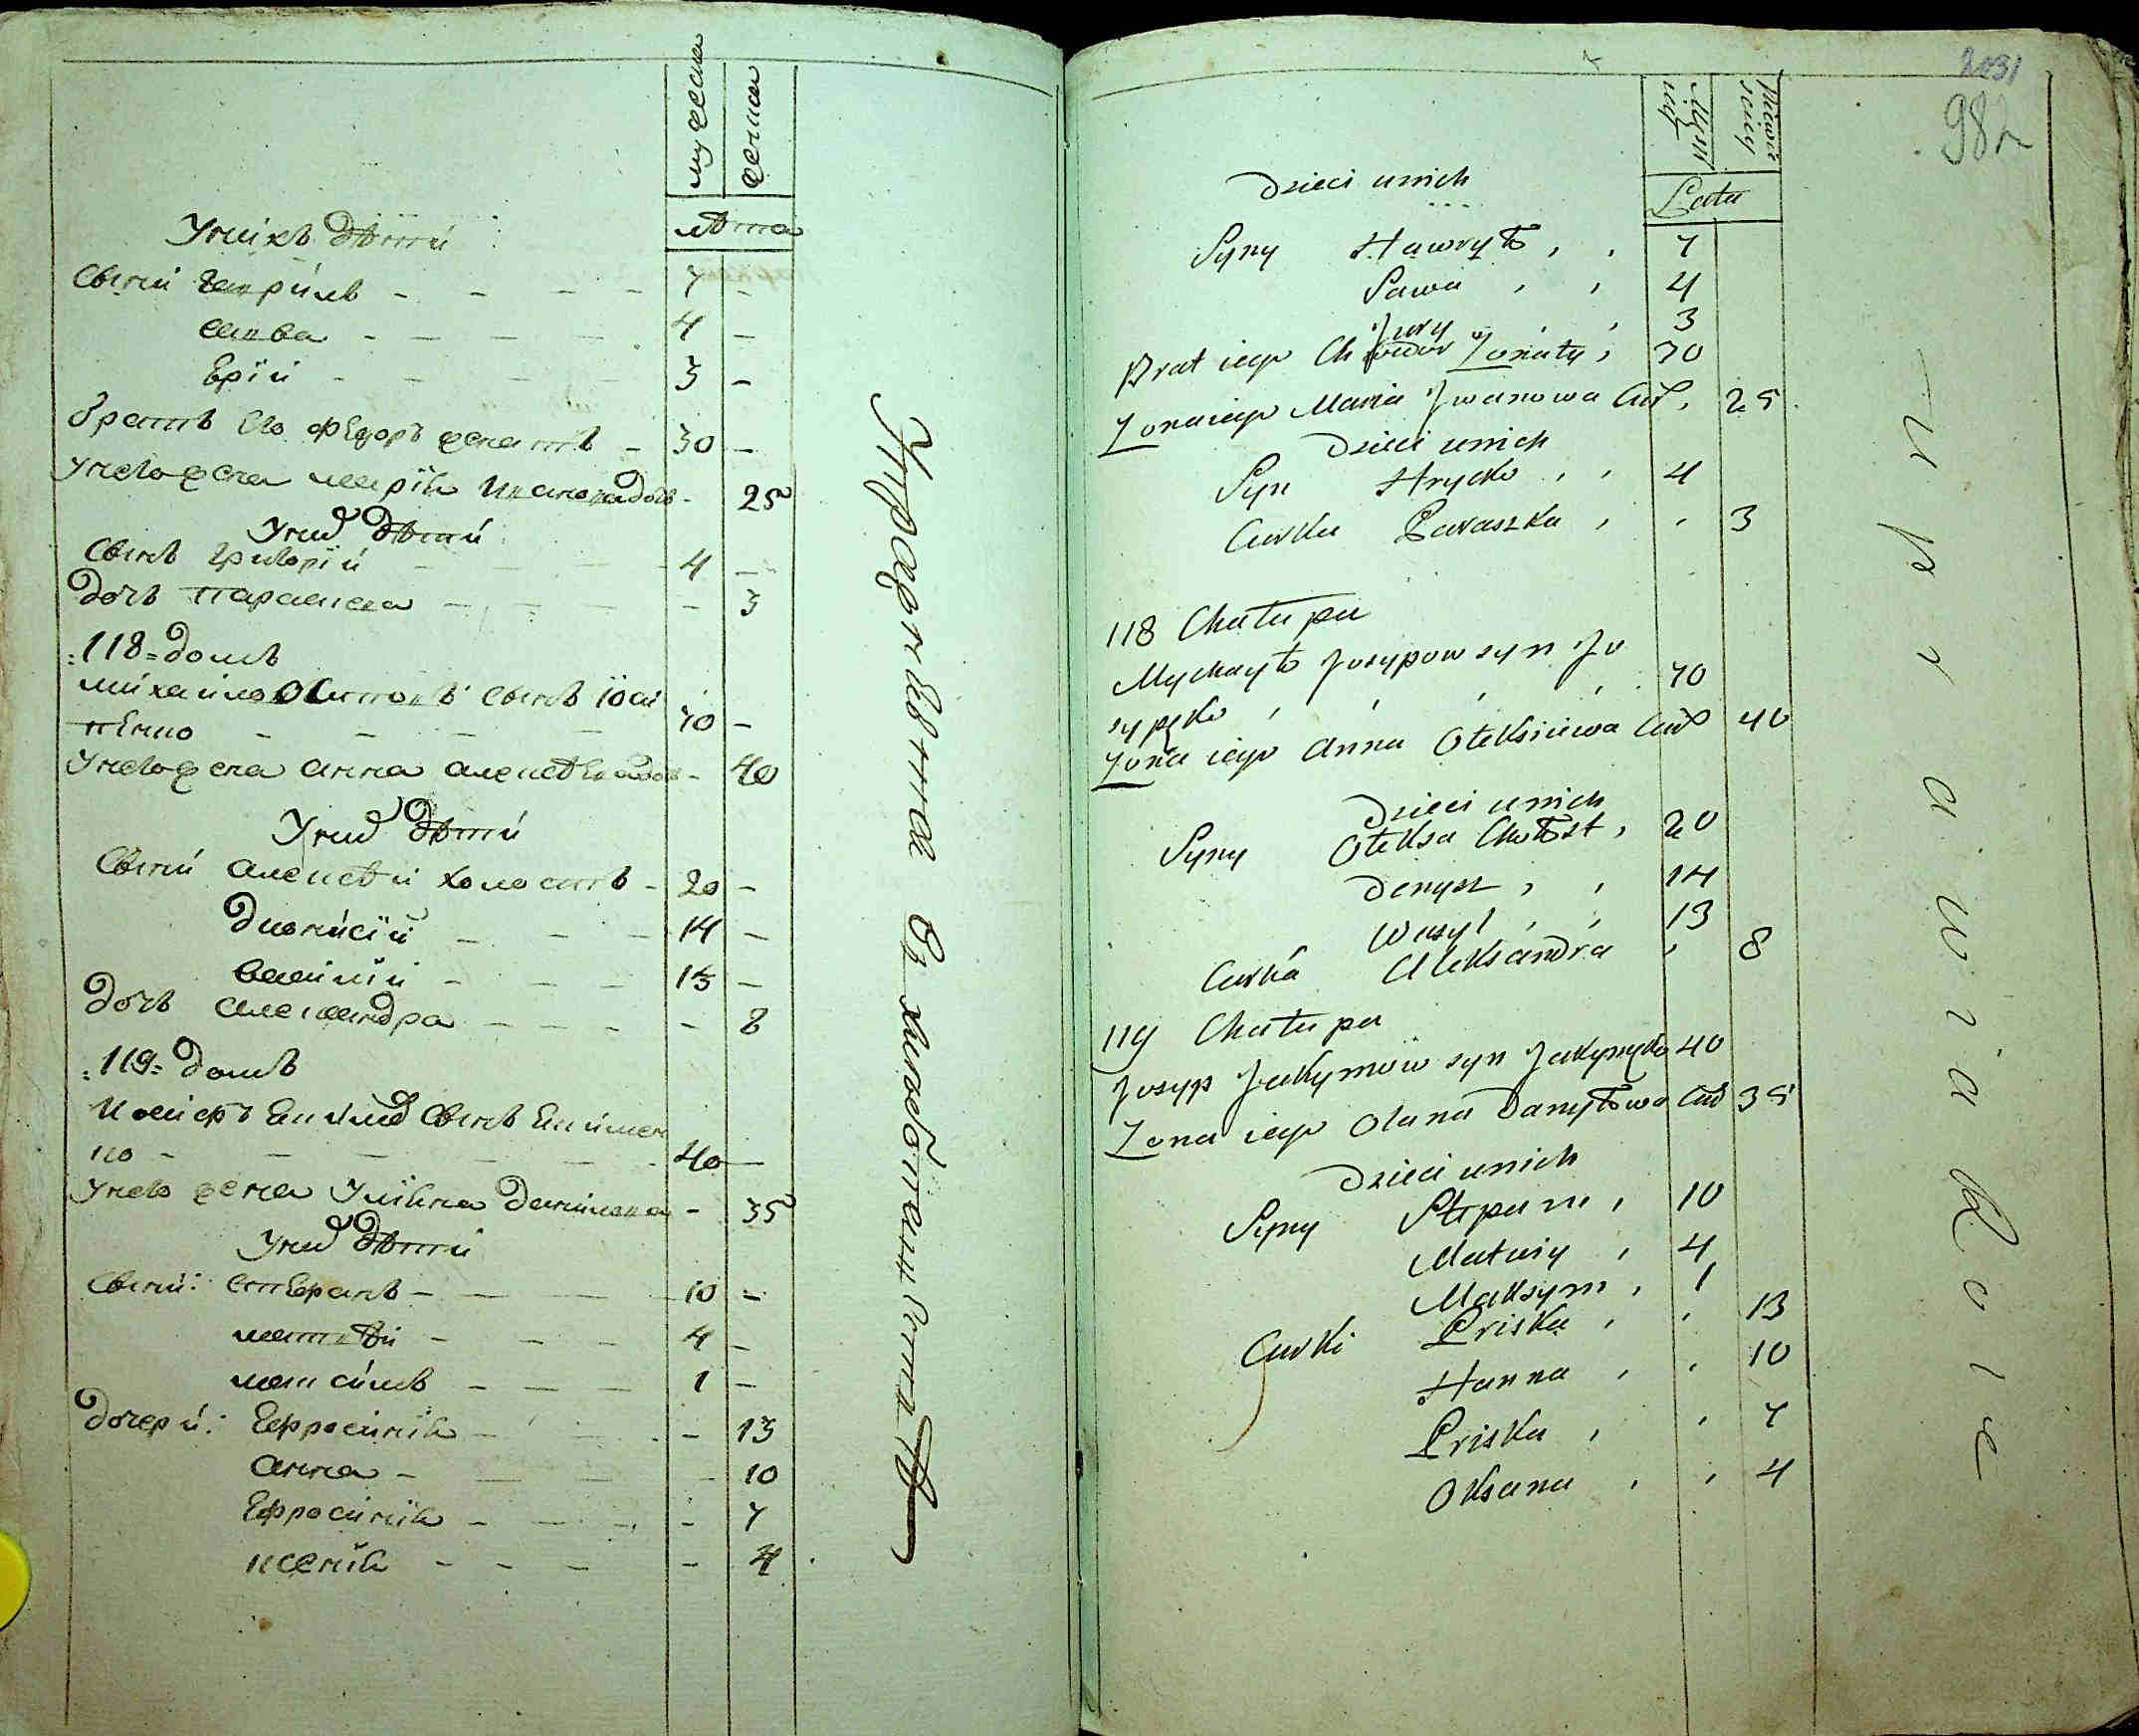 мужеска
женска
лѣта
У нихъ дѣти
Сыни Гаврiилъ - - - - 7 -
Савва - - - - 4 -
Ерiй - - - - 3 -
братъ его Федоръ женатъ - 30 -
У него жена Марiя Ивановадочь - 25
У них дѣти
Сынъ Григорiй - - - 4 -
дочь Параскева - - - - 3
118 домъ
Михайло Осиповъ сынъ Іоси
пенко - - - - 70 -
У него жена Анна Алексѣевадочь - 40
У них дѣти
Сыни Алексѣй холостъ - 20 -
Дионисiй - - - 14 -
Василiй - - - 13 -
Дочь Александра - - - - 8
119 домъ
Иосифъ Екимов сынъ Екимен
ко - - - - 40 -
У него жена Улiяна Данилова - 35
У них дѣти
Сыни: Стефанъ - - - 10 -
Матвѣй - - - 4 -
Максимъ - - - 1 -
Дочери: Ефросинiя - - - 13
Анна - - - 10
Ефросинiя - - - - 7
Ксенiя - - - - 4
2031
982
Męskiej
Niewieściej
Lata
Dzieci unich
Syny Hawryło , , 7
Sawa , , 4
Jury , , 3
Brat iego Chwedor Zonaty , 30
Zona iego Maria Jwanowa Cur , 25
Dzieci unich
Syn Hrycko , , 4
Curka Paraszka , , 3
118 Chałupa
Mychayło Josypow syn Jo
sypęko , , , 70
Zona iego Anna Ołeksiiewa Cur 40
Dzieci unich
Syny Ołeksa Chołost , 20
Denysz , , 14
Wasyl , , 13
Curka Aleksandra , 8
119 Chałupa
Josyp Jakymow syn Jakymęko 40
Zona iego Olana Danyłowa Cur 35
Dzieci unich
Syny Stepan , 10
Matwiy , 4
Maksym , 1
Curki Priska , , 13
Hanna , , 10
Priska , , 7
Oksana , , 4